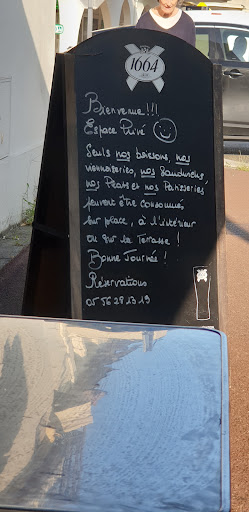 1664
Bienvenue !!!
Espace Privé
Seuls nos boissons, nos
viennoiseries, nos Sandwichs,
nos Plats et nos Patisseries
peuvent être consommés
sur place, à l'intérieur
ou sur la Terrasse !
Bonne Journée !
Réservations
05 56 28 13 19